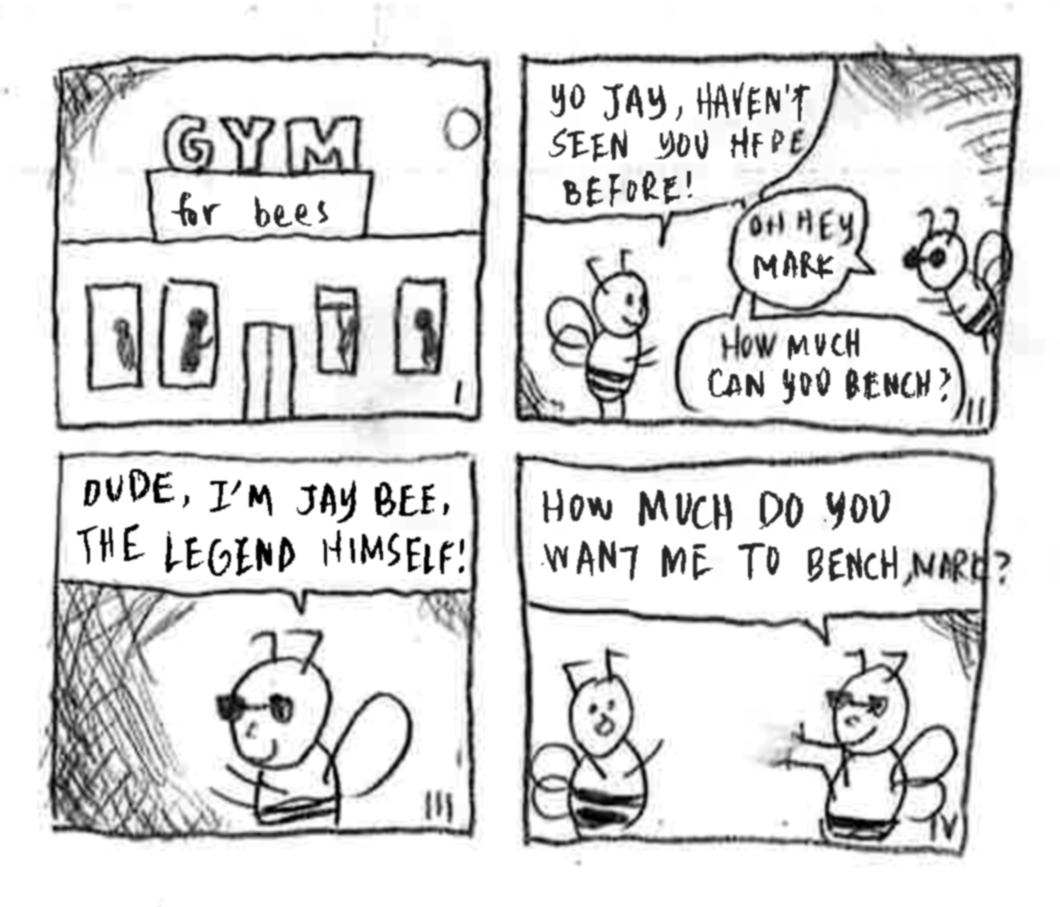 GYM
for bees
I
YO JAY, HAVEN'T
SEEN YOU HERE
BEFORE!
OH HEY
MARK
HOW MUCH
CAN YOU BENCH?
II
DUDE, I'M JAY BEE,
THE LEGEND HIMSELF!
III
HOW MUCH DO YOU
WANT ME TO BENCH, MARK?
IV